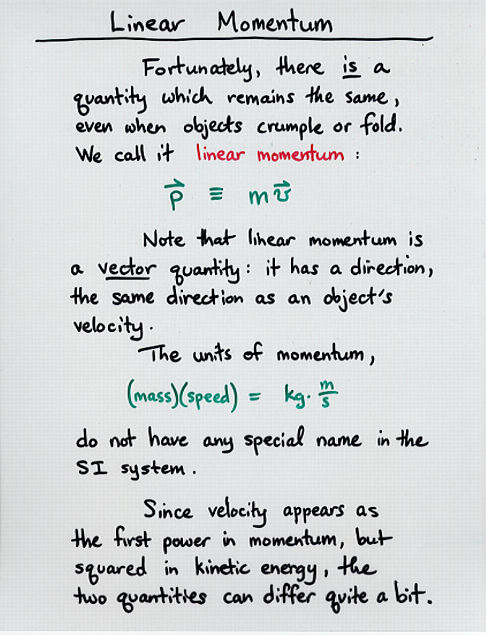 Linear Momentum
Fortunately, there is a
quantity which remains the same,
even when objects crumple or fold.
We call it linear momentum :
p⃗ ≡ m v⃗
Note that linear momentum is
a vector quantity: it has a direction,
the same direction as an object's
velocity.
The units of momentum,
(mass)(speed) = kg · m/s
do not have any special name in the
SI system.
Since velocity appears as
the first power in momentum, but
squared in kinetic energy, the
two quantities can differ quite a bit.